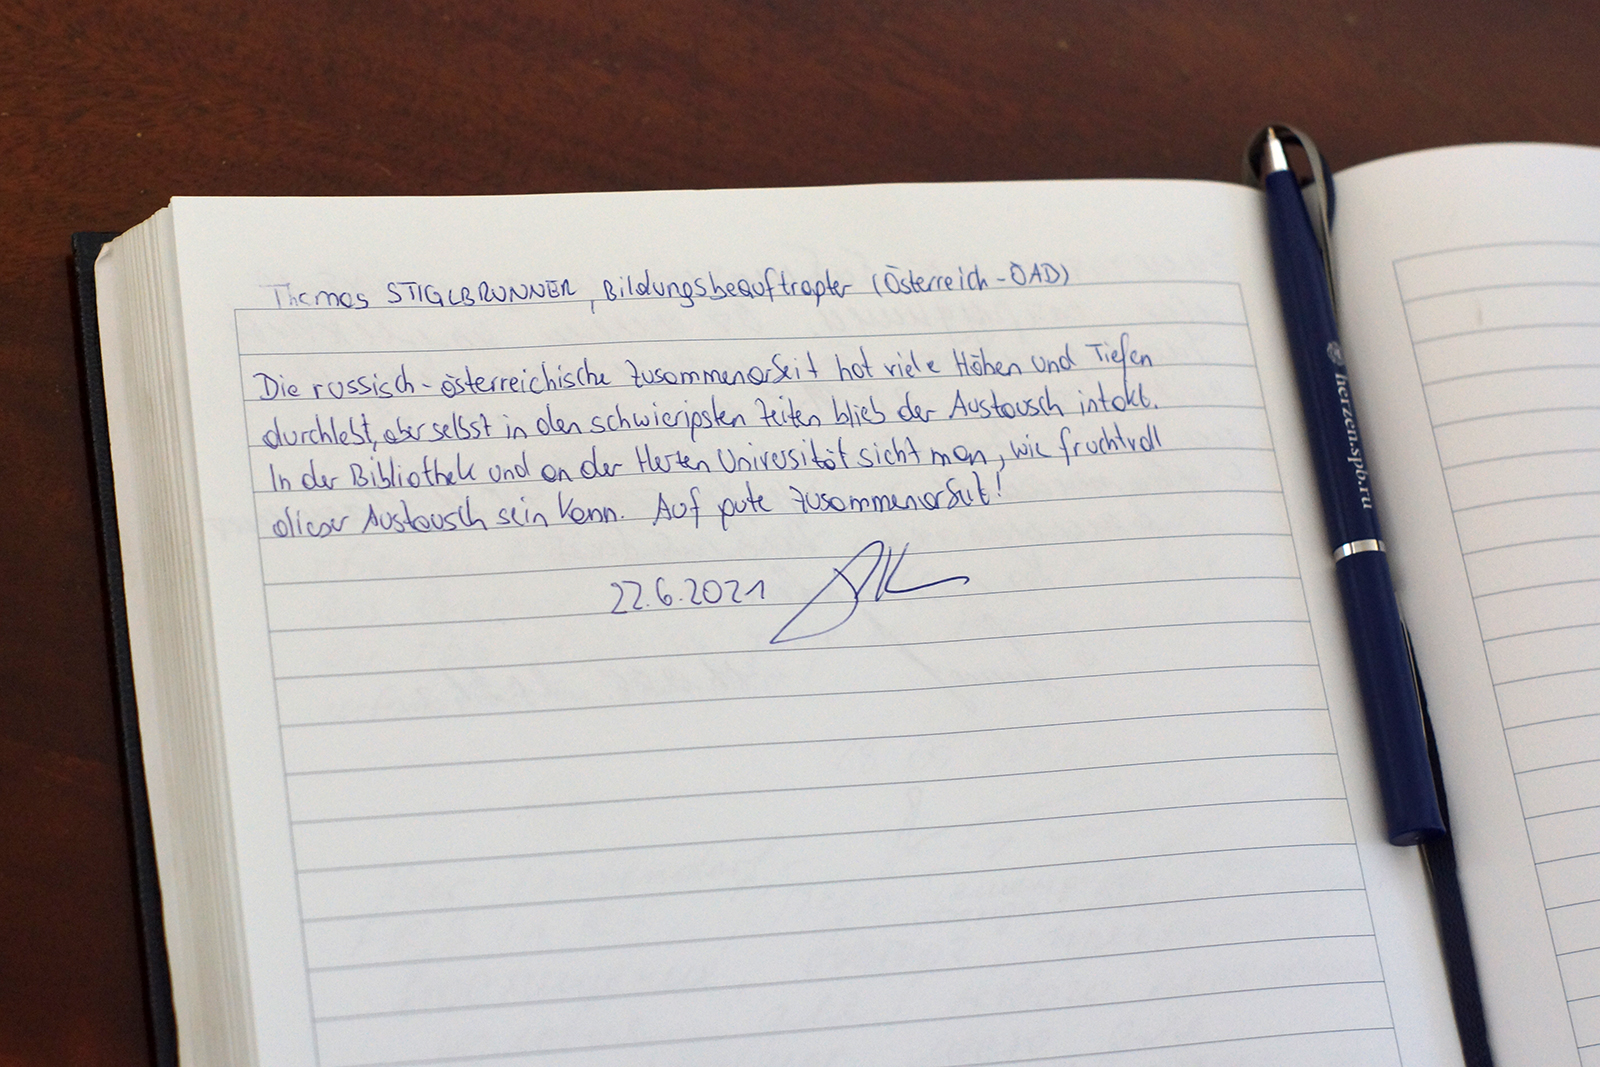 Thomas STIGLBRUNNER, Bildungsbeauftragter (Österreich - OAD)
Die russisch-österreichische Zusammenarbeit hat viele Höhen und Tiefen
durchlebt, aber selbst in den schwierigsten Zeiten blieb der Austausch intakt.
In der Bibliothek und an der Herzen Universität sieht man, wie fruchtvoll
dieser Austausch sein kann. Auf gute Zusammenarbeit!
22.6.2021
herzen.spb.ru